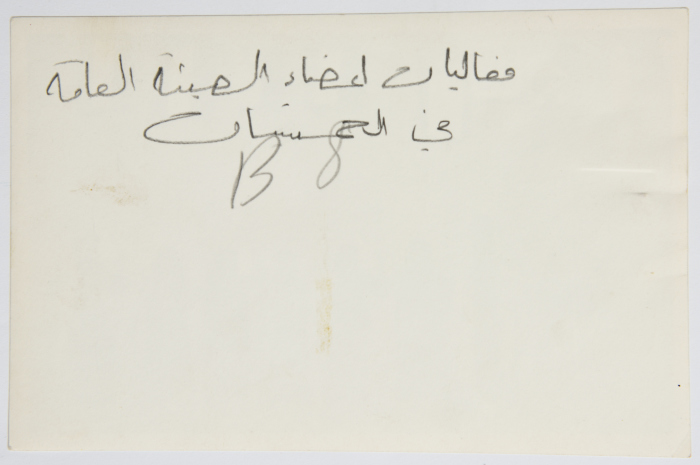 فعاليات اعضاء الهيئة العامة
في الخمسينات
B 8